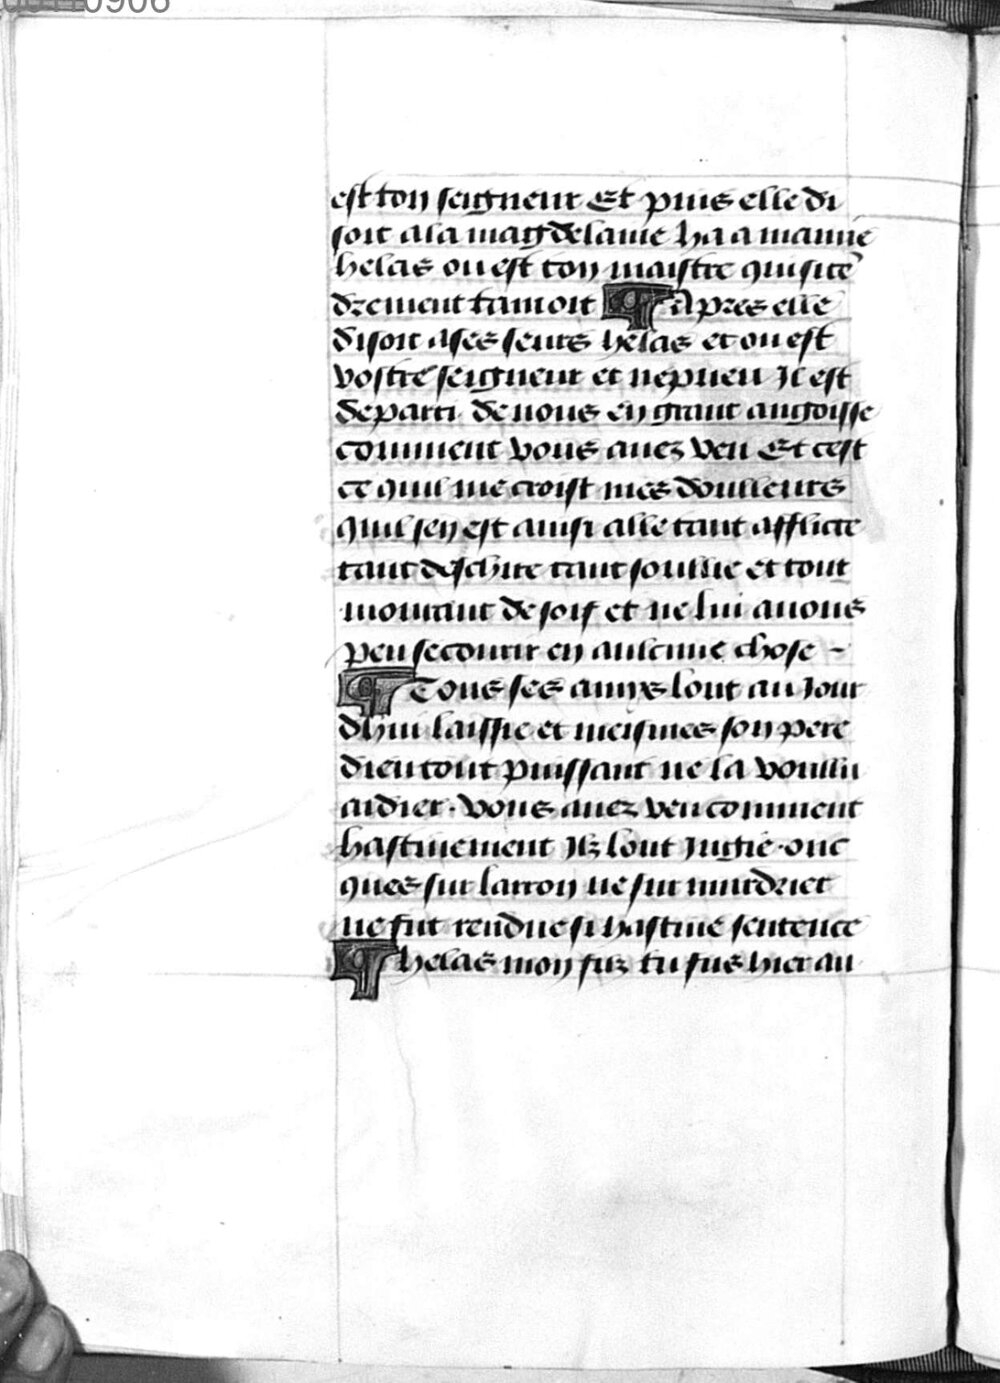 est ton seigneur Et puis elle di
soit a la magdelaine ha a marine
helas ou est ton maistre qui si te
drement tamoit ¶ Apres elle
disoit a ses seurs helas et ou est
vostre seigneur et nepueu Il est
departi de nous en grant angoisse
comment vous auez veu Et cest
ce quil me croist mes doulleurs
quil sen est ainsi alle tant afflicte
tant deschire tant soullie et tout
mourant de soif et ne lui auons
peu secourir en aulcune chose ~
¶ Tous ses amys lont au Jour
dhui laissie et meismes son pere
dieu tout puissant ne la voullu
aidier . vous auez veu comment
hastiuement Ilz lont Jugie . onc
ques sur larron ne sur murdrier
ne fut rendue si hastiue sentence
¶ helas mon filz tu fus hier au